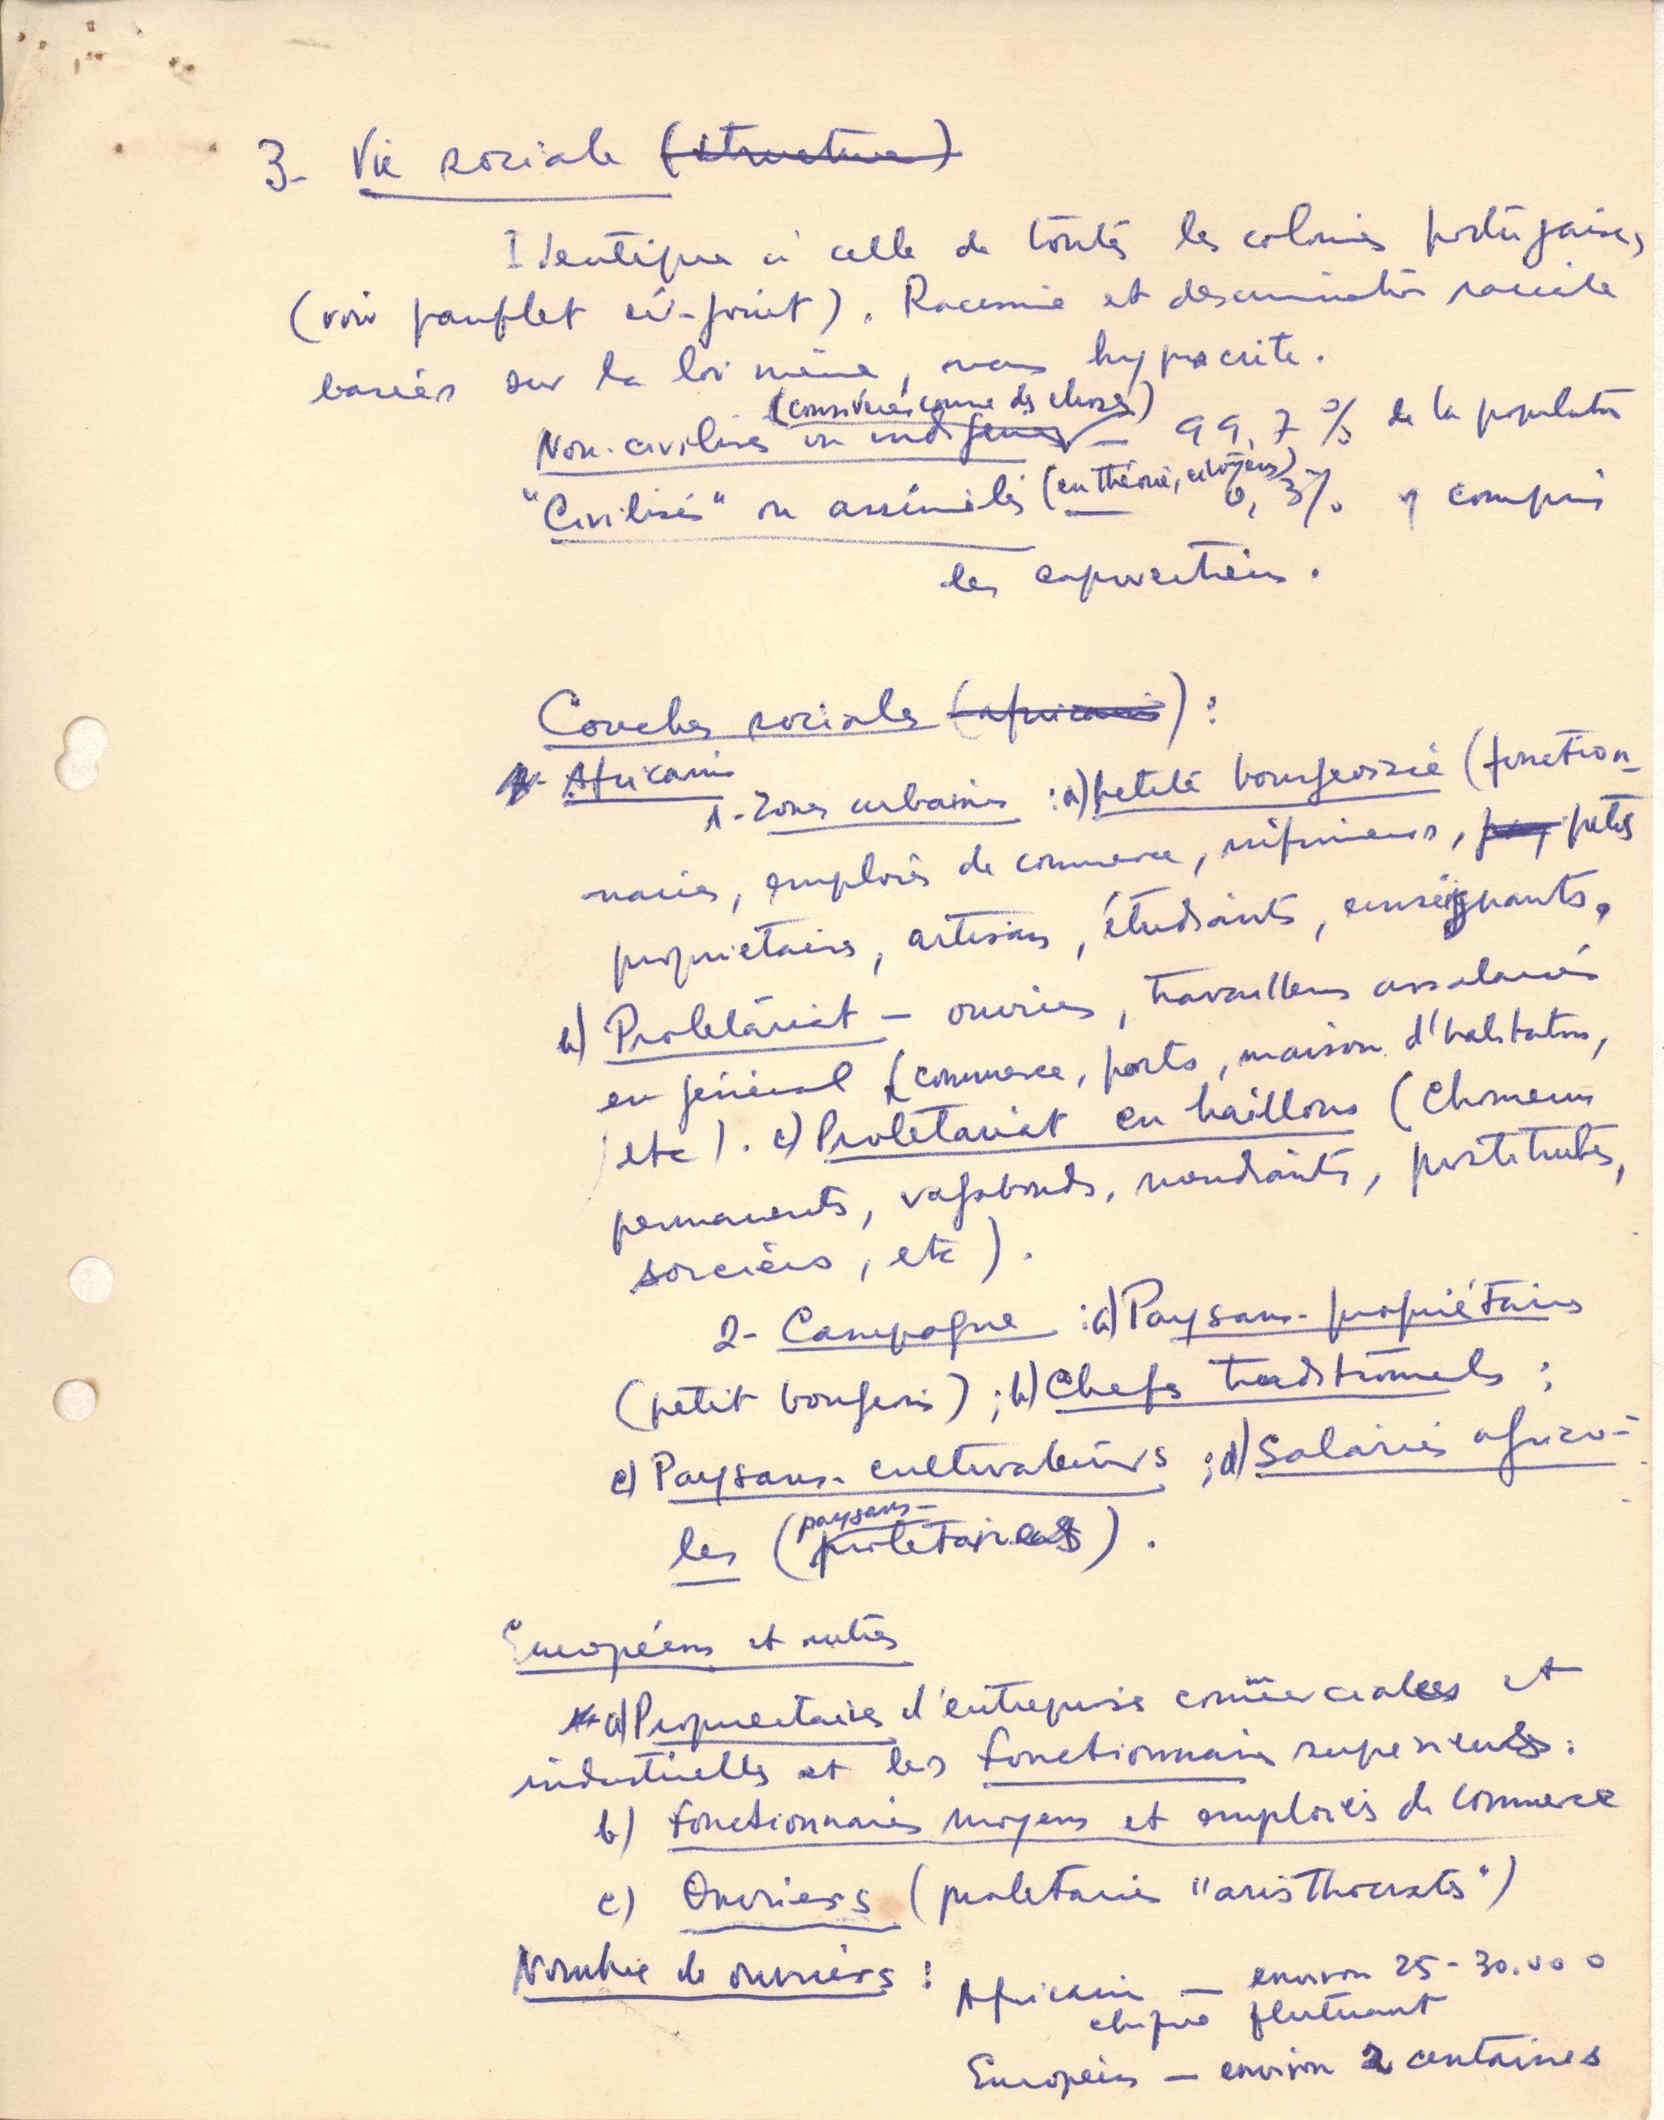 3- Vie sociale (structure)
Identique à celle de toutes les colonies portugaises
(voir panflet ci-joint). Racisme et descrimination raciale
basées sur la loi même, mais hypocrite.
(considérés comme des choses)
Non-civilisés ou indigènes — 99,7% de la population
(en théorie, citoyens)
"Civilisés" ou assimilés 0,3% y compris
les capverdiens.
Couches sociales (africaines):
Africains
1- Zones urbaines : a) petite bourgeoisie (fonction-
naires, employés de commerce, infirmiers, petits
proprietaires, artisans, étudiants, enseignants.
b) Prolétariat - ouvriers, travailleurs assalariés
en général (commerce, ports, maison d'habitation,
etc). c) Proletariat en haillons (chomeurs
permanents, vagabonds, mendiants, prostituées,
sorciers, etc).
2- Campagne : a) Paysans-propriétaires
(petit bourgeois) ; b) Chefs traditionnels ;
c) Paysans-cultivateurs ; d) Salariés agrico-
paysans-
les (proletaires).
Européens et autres
a) Proprietaires d'entreprise commerciales et
industrielles et les fonctionnaires superieurs.
b) Fonctionnaires moyens et employés de commerce
c) Ouvriers (proletaires "aristhocrats")
Nombre de ouvriers :
Africains — environ 25-30.000
chifre fluctuant
Européens — environ 2 centaines